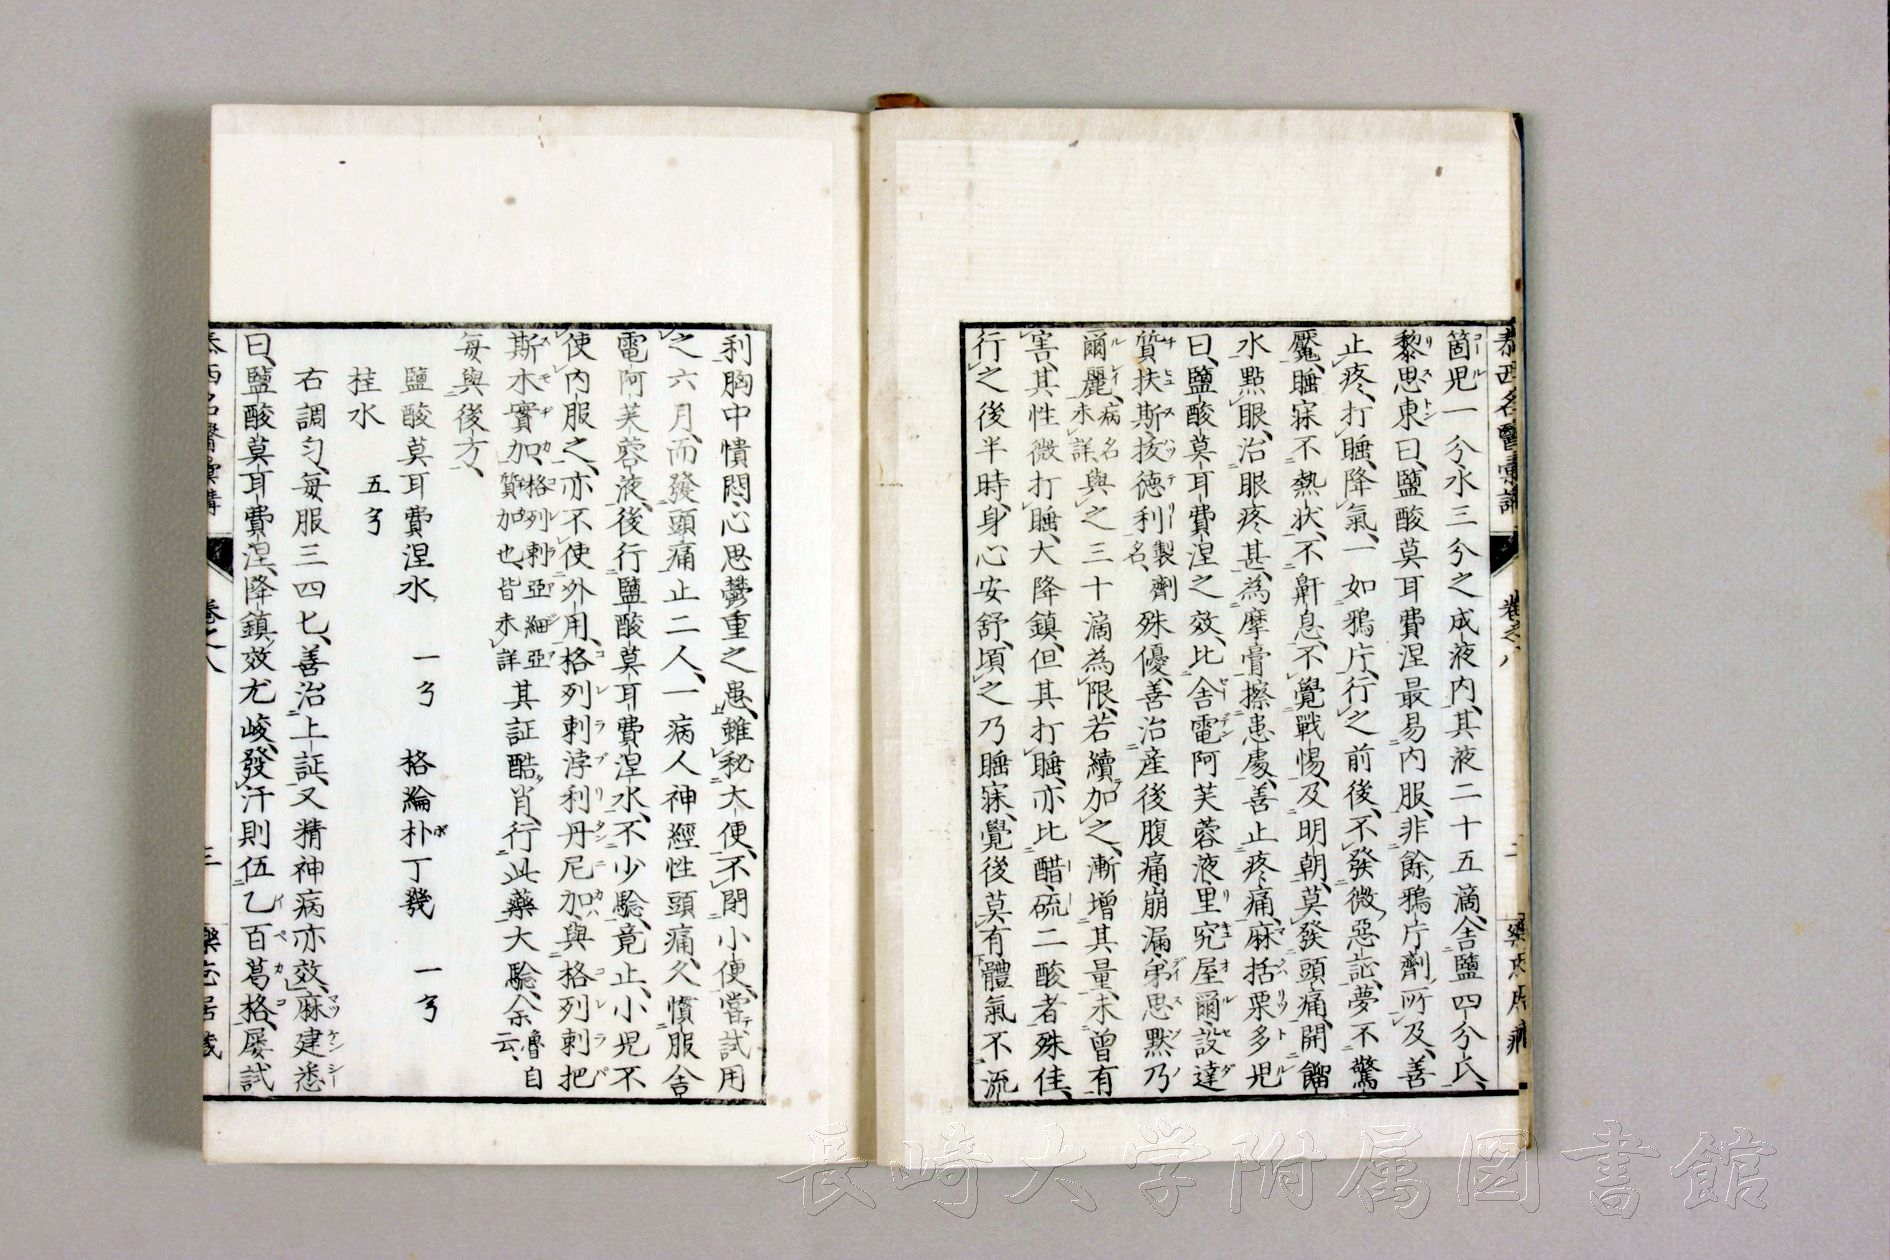 泰西名醫彙講
卷之八
二
樂志居藏
箇児一分水三分之成液内、其液二十五滴、舎鹽四分氏、
黎思東曰、鹽酸莫耳費涅最易内服、非餘鴉片劑所及、善
止疼、打睡、降氣、一如鴉片、行之前後、不發微惡証、夢不驚
魘、睡寐不熱状、不鼾息、不覺戰惕、及明朝、莫發頭痛、開餾
水點眼、治眼疼甚、為摩膏擦患處、善止疼痛、麻括栗多児
曰、鹽酸莫耳費涅之效、比舎電阿芙蓉液、里究屋爾、設達
質扶斯、扳德利製劑名、殊優、善治産後腹痛、崩漏、弟思黙乃
爾麗、病名未詳、與之三十滴為限、若續加之、漸增其量、未曾有
害、其性微打睡、大降鎮、但其打睡、亦比醋、硫二酸者殊佳、
行之後半時、身心安舒、頃之乃睡寐、覺後莫有體氣不流
利胸中憒悶、心思鬱重之患、雖秘大便、不閉小便、嘗試用
之六月、而發頭痛止二人、一病人神經性頭痛、久慣服舎
電阿芙蓉液、後行鹽酸莫耳費涅水、不少驗、竟止、小児不
使内服之、亦不使外用、格列剌浡利丹尼加與格列剌把
斯木實加、格列剌亞細亞質加也、皆未詳其証酷肖、行此藥大驗、余魯自云、
毎與後方、
鹽酸莫耳費涅水 一 格綸朴丁幾 一
桂水 五
右調匀、毎服三四匕、善治上証、又精神病亦效、麻建悉
曰、鹽酸莫耳費涅、降鎮效尤峻、發汗則伍乙百葛格、屡試
泰西名醫彙講
卷之八
三
樂志居藏
長崎大学附属図書館